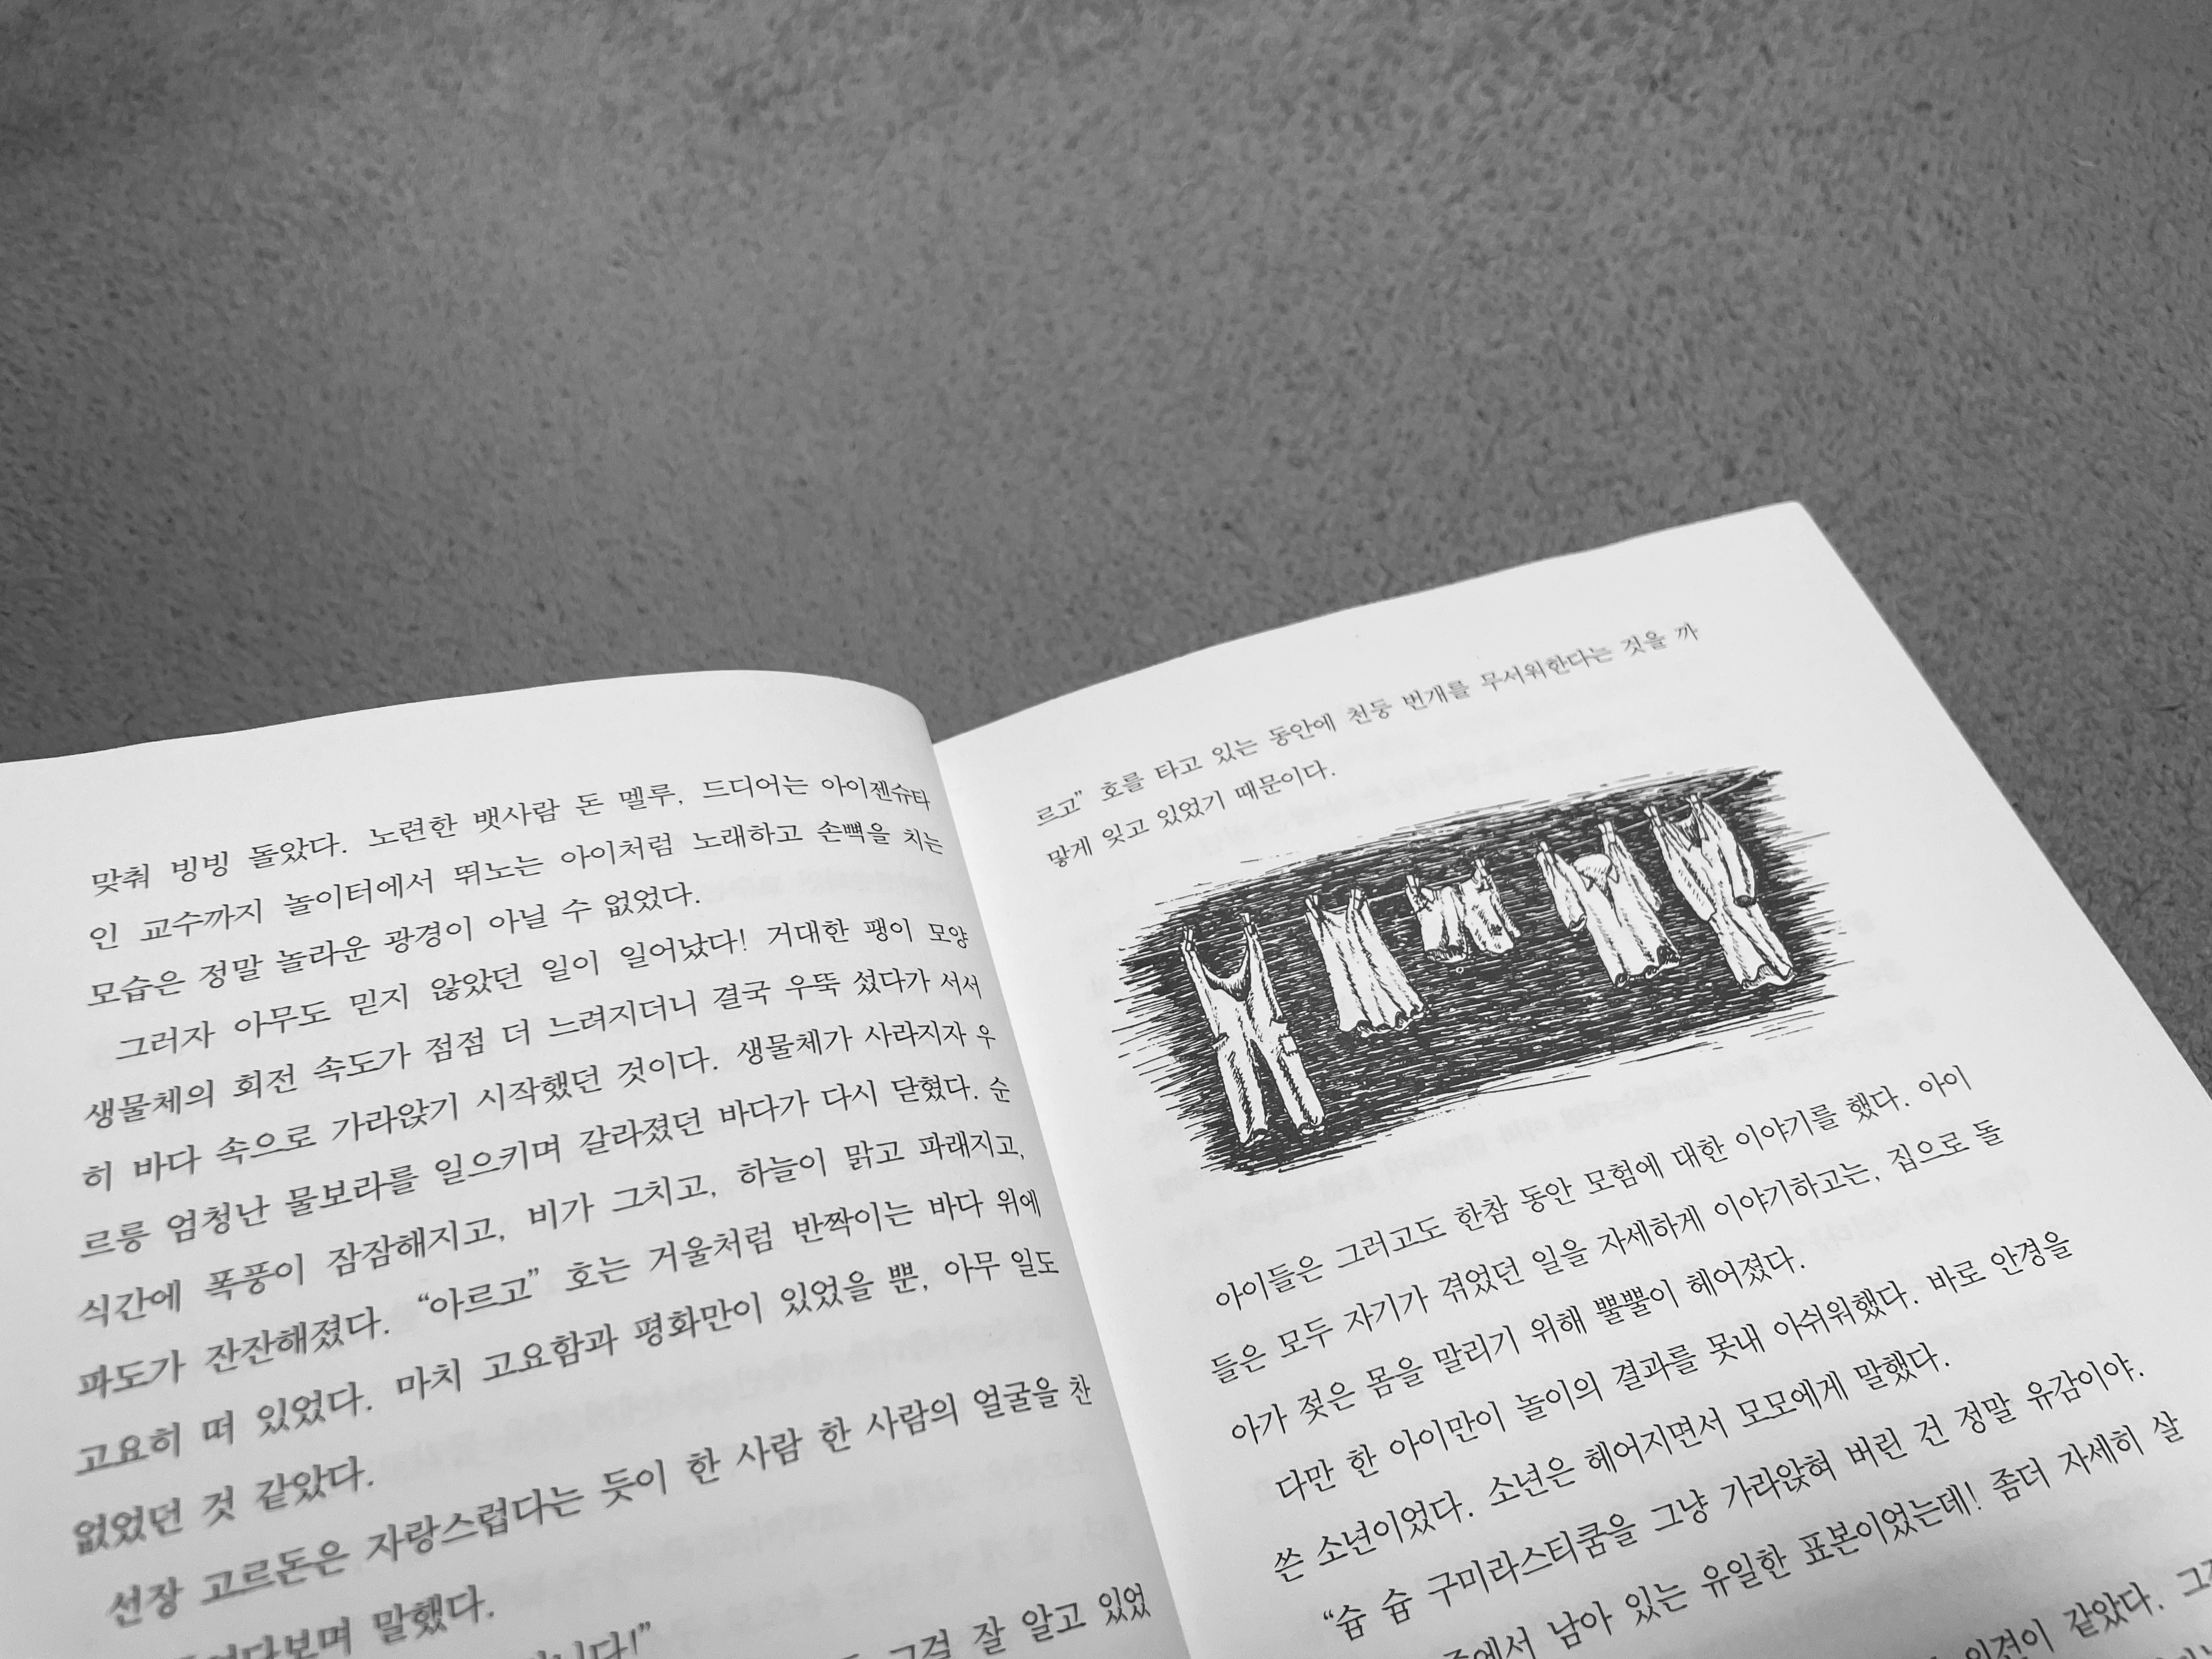 맞춰 빙빙 돌았다. 노련한 뱃사람 돈 멜루, 드디어는 아이젠슈타
인 교수까지 놀이터에서 뛰노는 아이처럼 노래하고 손뼉을 치는
모습은 정말 놀라운 광경이 아닐 수 없었다.
그러자 아무도 믿지 않았던 일이 일어났다! 거대한 팽이 모양
생물체의 회전 속도가 점점 더 느려지더니 결국 우뚝 섰다가 서서
히 바다 속으로 가라앉기 시작했던 것이다. 생물체가 사라지자 우
르릉 엄청난 물보라를 일으키며 갈라졌던 바다가 다시 닫혔다. 순
식간에 폭풍이 잠잠해지고, 비가 그치고, 하늘이 맑고 파래지고,
파도가 잔잔해졌다. “아르고” 호는 거울처럼 반짝이는 바다 위에
고요히 떠 있었다. 마치 고요함과 평화만이 있었을 뿐, 아무 일도
없었던 것 같았다.
선장 고르돈은 자랑스럽다는 듯이 한 사람 한 사람의 얼굴을 찬
말했다.
그걸 잘 알고 있었
르고” 호를 타고 있는 동안에 천둥 번개를 무서워한다는 것을 까
맣게 잊고 있었기 때문이다.
아이들은 그러고도 한참 동안 모험에 대한 이야기를 했다. 아이
들은 모두 자기가 겪었던 일을 자세하게 이야기하고는, 집으로 돌
아가 젖은 몸을 말리기 위해 뿔뿔이 헤어졌다.
다만 한 아이만이 놀이의 결과를 못내 아쉬워했다. 바로 안경을
쓴 소년이었다. 소년은 헤어지면서 모모에게 말했다.
“슘 슘 구미라스티쿰을 그냥 가라앉혀 버린 건 정말 유감이야.
남아 있는 유일한 표본이었는데! 좀더 자세히 살
같았다.